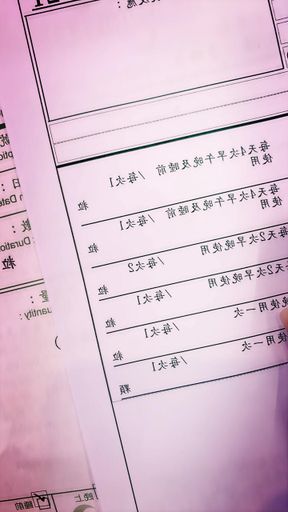 應：
每天4次早午晚及睡前 /每次1
使用
粒
每天4次早午晚及睡前 /每次1
使用
粒
每天2次早晚使用 /每次2
粒
每天2次早晚使用 /每次1
粒
使用一次 /每次1
粒
使用一次 /每次1
顆
日：
Date
數：
Duration
粒
量：
uantity :
)
晚上
睡前